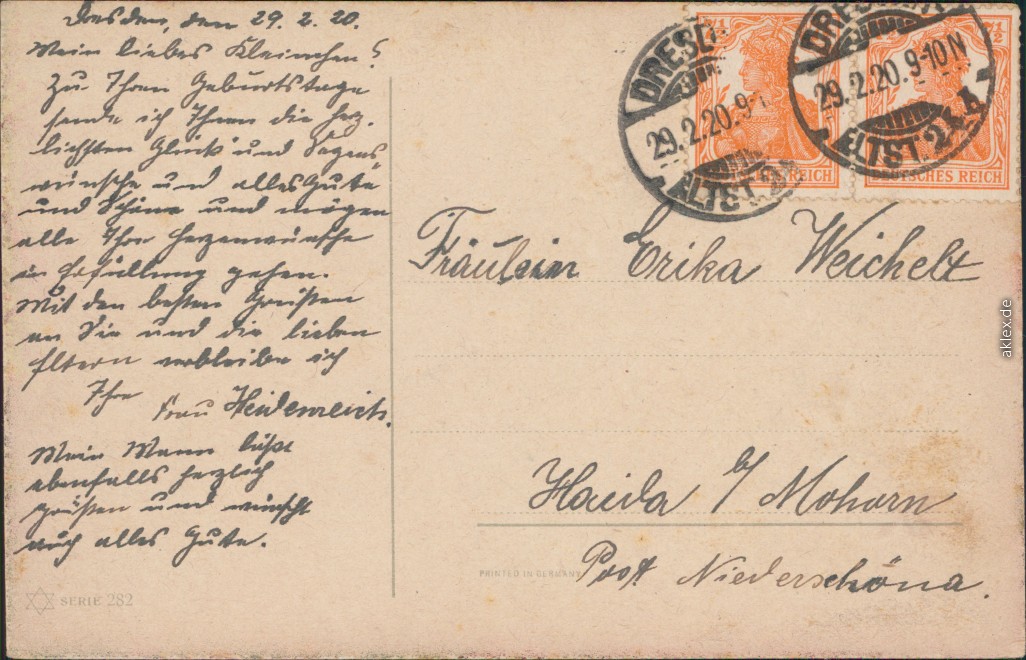 Dresden, den 29. 2. 20.
Mein liebes Kleinchen!
Zu Ihrem Geburtstage
sende ich Ihnen die herz-
lichsten Glück und Segens-
wünsche und alles Gute
und Schöne und mögen
alle Ihre Herzenwünsche
in Erfüllung gehen.
Mit den besten Grüßen
an Sie und die lieben
Eltern verbleibe ich
Ihre
Frau Heidenreich.
Mein Mann läßt
ebenfalls herzlich
grüßen und wünscht
auch alles Gute.
SERIE 282
DRESD
29.2.20.9-
ALTST. 24
DRESDEN
29.2.20.9-10N
ALTST. 24
7½
DEUTSCHES REICH
Fräulein Erika Weichelt
Haida b/ Mohorn
Post Niederschöna.
PRINTED IN GERMANY
aklex.de